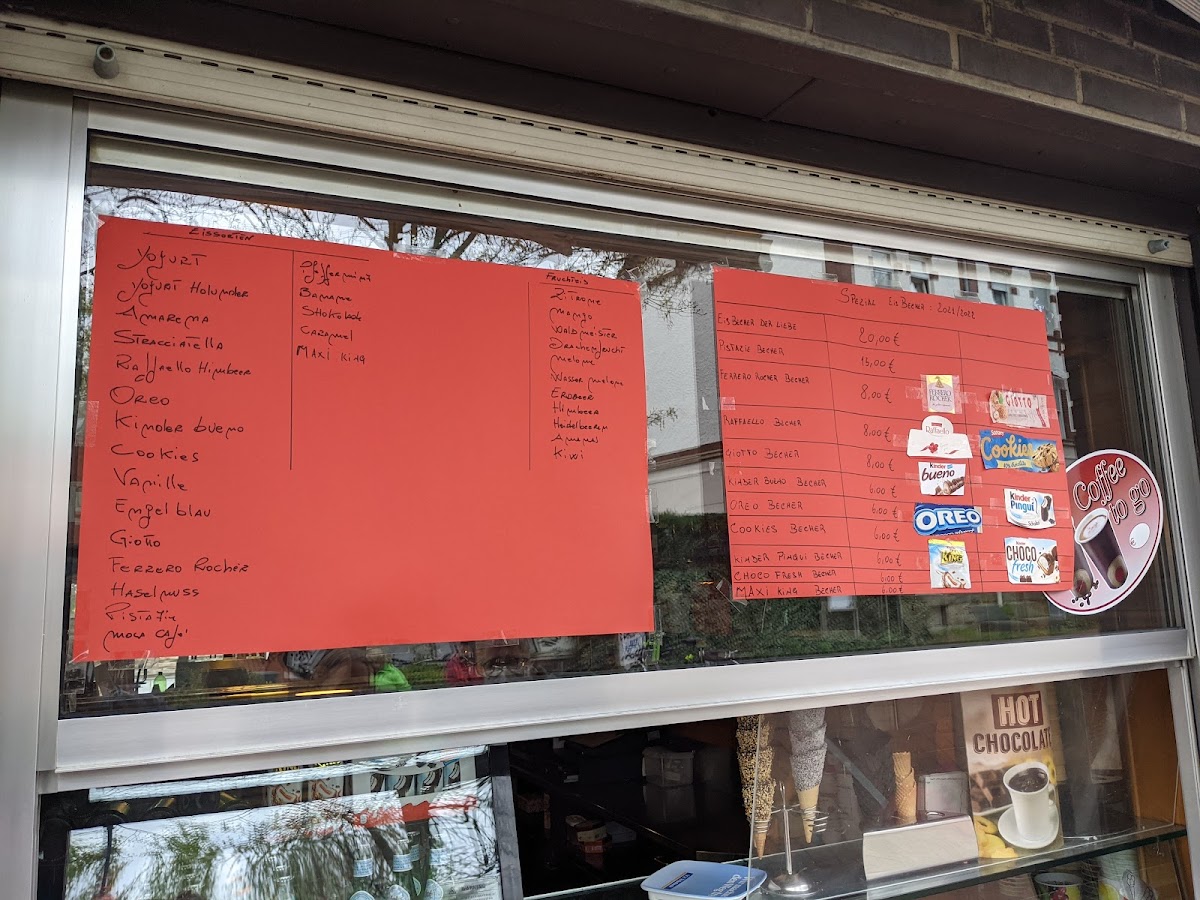 Eissorten
Yogurt
Yogurt Holunder
Amarena
Stracciatella
Raffaello Himbeer
Oreo
Kinder bueno
Cookies
Vanille
Engel blau
Giotto
Ferrero Rocher
Haselnuss
Pistazie
Moca Café
Pfefferminz
Banane
Shokolade
Caramel
Maxi King
Fruchteis
Zitrone
Mango
Waldmeister
Drachenfrucht
Melone
Wasser melone
Erdbeer
Himbeer
Heidelbeeren
Ananas
Kiwi
Spezial EisBecher: 2021/2022
EisBecher der Liebe 20,00 €
Pistazie Becher 15,00 €
Ferrero Rocher Becher 8,00 €
Raffaello Becher 8,00 €
Giotto Becher 8,00 €
Kinder Bueno Becher 6,00 €
Oreo Becher 6,00 €
Cookies Becher 6,00 €
Kinder Pinqui Becher 6,00 €
Choco Fresh Becher 6,00 €
Maxi King Becher 6,00 €
FERRERO ROCHER
GIOTTO
Raffaello
Cookies
Kinder bueno
Kinder Pinguí
OREO
KING
CHOCO fresh
Coffee to go
€
HOT CHOCOLATE